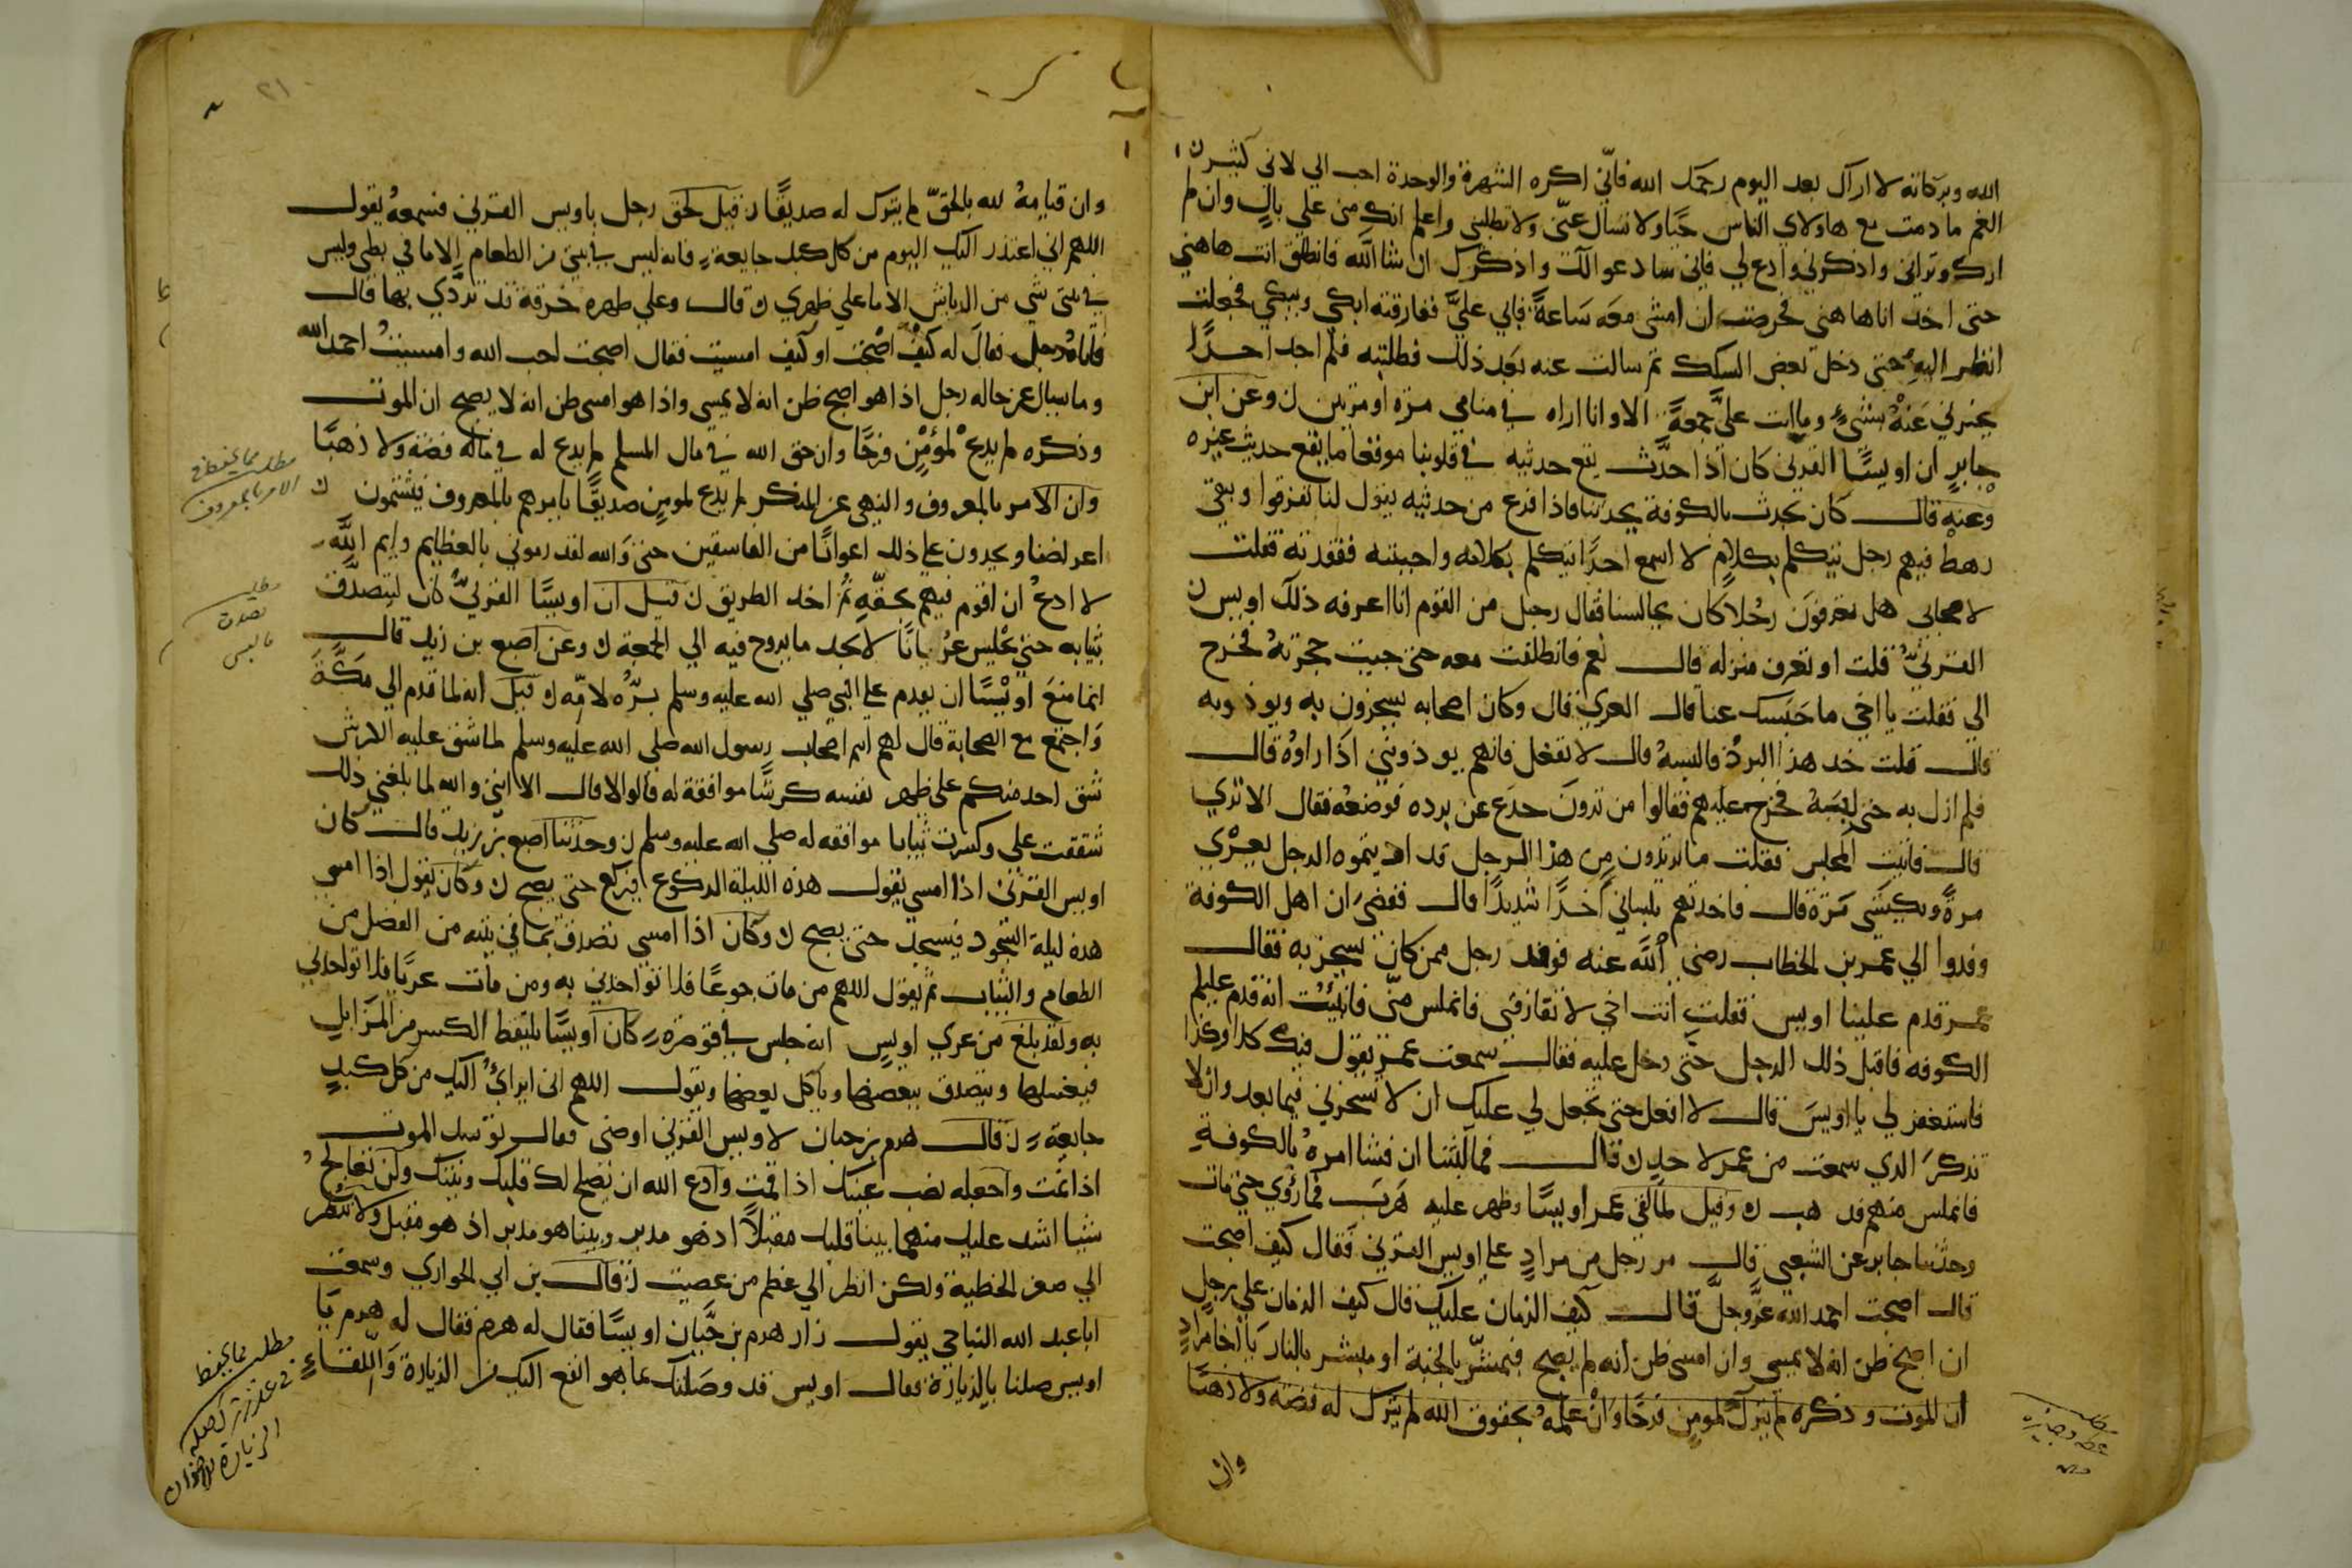 الله وبركاته لا اراك بعد اليوم رحمك الله فانّي اكره الشهرة والوحدة احب الي لاني كثير
الغم ما دمت مع هاولاي الناس حيًّا ولا تسال عنّي ولا تطلبني واعلم انك مني علي بالٍ وان لم
ارك وتراني واذكرني وادع لي فاني سادعو الك واذكرك ان شا الله فانطلق انت هاهني
حتى اخد انا هاهني فحرصت ان امشي معه ساعةً فابي عليَّ ففارقته ابكي ويبكي فجعلت
انظر اليه حتى دخل بعض السكك ثم سالت عنه بعد ذلك فطلبته فلم اجد احدًا
يخبرني عَنهُ بشيءٍ وما اتت علىَّ جمعةً الا وانا اراه في منامي مرّه او مرتين ن وعن ابن
جابرٍ ان اويسًا القرني كان اذا حدَّث يقع حديثه في قلوبنا موقعا ما يقع حديث غيره
وعنه قال كان يحدث بالكوفة يحدثنا فاذا فرغ من حديثه يقول لنا تفرقوا ويبقي
رهط فيهم رجل يتكلم بكلامٍ لا اسمع احدًا يتكلم بكلامه واحببته ففقدته فقلت
لاصحابى هل تعرفون رجُلا كان يجالسنا فقال رجل من القوم انا اعرفه ذلك اويس ن
القرنيُّ قلت او تعرف منزله قال نعم فانطلقت معه حتى جيت حجرتهُ فخرج
الي فقلت يا اخي ما حَبَسك عنا قال العري قال وكان اصحابه يسخرون به ويوذونه
قال قلت خد هذا البردُ فالبسهُ قال لا تفعل فانهم يوذونني اذا راوهُ قال
فلم ازل به حتى لبسَهُ فخرج عليهم فقالوا من ترونَ خدَع عن برده فوضعه فقال الا تري
قال فاتيت المجلس فقلت ما تريدون من هذا الرجل قد اذيتموه الرجل يعرْي
مرةً ويكتسَي مَرّة قال فاخدتهم بلساني اخدًا شديدًا قال فقضي ان اهل الكوفة
وفدوا الي عمر بن الخطاب رضي الله عنه فوفد رجل ممن كان يسخر به فقال
عمر قدم علينا اويس فقلت انت اخي لا تفارقني فانملس منّي فانبئت انه قدم عليكم
الكوفه فاقبل ذلك الرجل حتّى دخل عليه فقال سمعت عمر يقول فيك كدا وكدا
فاستغفر لي يا اويسَ قال لا افعل حتى تجعل لي عليك ان لا تسخرني فيما بعد وان لا
تدكرَ الدي سمعت من عمر لاحدٍ ن قال فما لبثنا ان فشا امرهُ بالكوفةِ
فانملس منهم فدهب ن وقيل لما لقي عمر اويسًا وظهر عليه هَربَ فما رُؤي حتى مات
وحدّثنا جابر عن الشعبي قال مر رجل من مرادٍ علي اويس القرني فقال كيف اصبحت
قال اصبحت احمد الله عزَّ وجلَّ قال كيف الزمان عليك قال كيف الزمان علي رجلٍ
ان اصبح ظن انه لا يمسي وان امسى ظن انه لم يصبح فمبشّر بالجنة او مبشر بالنار يا اخا مرادٍ
ان الموت وذكره لم يترك لمومنٍ فرحًا وانْ علمهُ بحقوق الله لم يترك له فضه ولا ذهبًا
وان
مطلب
٢١
وان قيامهُ لله بالحقّ لم يترك له صديقًا ن قيل لحق رجل باويس القرني فسمعهُ يقول
اللهم اني اعتذر اليك اليوم من كل كبد جايعة ن فانه ليس في بيتي من الطعام الا ما في بطني وليس
في بيتى شي من الرياش الا ما علي ظهري ن قال وعلي ظهره خرقة قد تردّي بها قال
فاتاه رجل فقالَ له كيفْ اصْبحْت او كيف امسيت فقال اصبحت احب الله وامسيتُ احمد الله
وما تسال عن حاله رجل اذا هو اصبح ظن انه لا يمسي واذا هو امسى ظن انه لا يصبح ان الموت
وذكره لم يدعْ لمؤمِنٍ فرحًا وان حق الله في مال المسلم لم يدع له في ماله فضه ولا ذهبًا
وان الامر بالمعروف والنهي عن المنكر لم يدع لمومنٍ صديقًا نامرهم بالمعروف فيشتمون ن
اعراضنا ويجدون على ذلك اعوانًا من الفاسقين حتى وَالله لقد رموني بالعظايم وايم اللَّه
لا ادعُ ان اقوم فيهم بحقّهِ ثُم اخد الطريق ن قيل ان اويسًا القرنيُّ كان ليتصدّق
بثيابه حتي يجْلس عُريانًا لا يجد ما يروح فيه الي الجمعة ن وعن اصبع بن زيد قال
انما منعَ اويْسًا ان يقدم علي النبي صلي الله عليه وسلم برّهُ لامّه ن وقيل انه لما قدم الي مَكَّةَ
وَاجتمع مع الصحابة قال لهم انتم اصحاب رسول الله صلي الله عليه وسلم لما شق عليه
شق احد منكم علي ظهر نفسه موافقة له قالوا لا قال الا انني والله لما بلغني ذلك
شققت علي وكسرت ثيابا موافقه له صلي الله عليه وسلم ن وحدّثنا اصبع بن زيد قال كان
اويس القرني اذا امسي يقول هذه الليلة الركوع فيركع حتى يصبح ن وكان يقول اذا امسي
هذه ليلة السجود فيسجد حتى يصبح ن وكان اذا امسي تصدق بما في بيته من الفضل من
الطعام والثياب ثم يقول اللهم من مات جوعًا فلا تواخدني به ومن مات عريًا فلا تواخدني
به ولقد بلغ من عري اويسٍ انه جلس في قوصره ن كان اويسًا يلتقط الكسر من المزابلِ
فيغسلها ويتصدق ببعضها وياكل بعضها ويقول اللهم اني ابرأُ اليك من كل كبدٍ
جايعةٍ ن قال هرم بن حيان لاويس القرني اوصني فقال توسد الموت
اذا نمت واجعله نصب عينيك اذا قمت وادع الله ان يصلح لك قلبك ونيتك ولن تعالجُ
شيا اشد عليك منهما بينا قلبك مقبلًا اذ هو مدبر وبينا هو مدبر اذ هو مقبل ولا تنظر
الي صغر الخطية ولكن انظر الي عظم من عصيت ن قال بن ابي الحواري وسمعت
ابا عبد الله النباجي يقول زار هرم بن حَيَّان اويسًا فقال له هرم يَا
اويس صلنا بالزيارة فقال اويس قد وصَلتك بما هو انفع اليك من الزيارة وَاللقاءِ
مطلب مما يحفظ في
الامر بالمعروف
مطلب
تصدق
مطلب مما يحفظ
الزيارة للاخوان